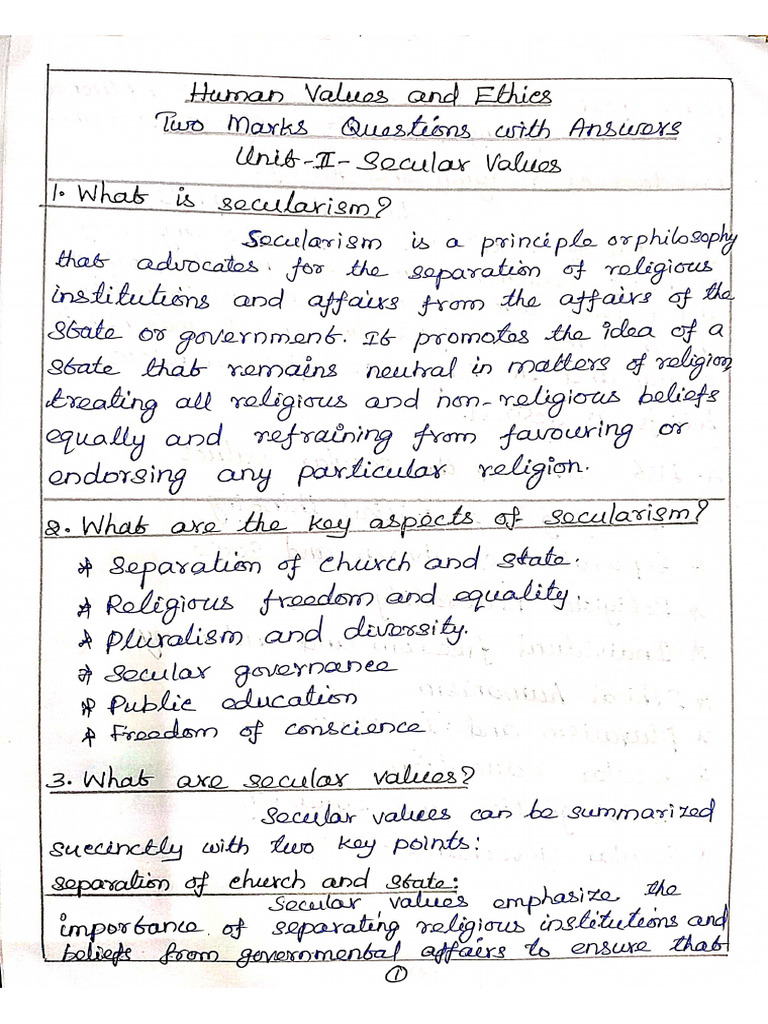 Human Values and Ethics
Two Marks Questions with Answers
Unit-II-Secular Values
1. What is secularism?
Secularism is a principle or philosophy
that advocates for the separation of religious
institutions and affairs from the affairs of the
state or government. It promotes the idea of a
state that remains neutral in matters of religion,
treating all religious and non-religious beliefs
equally and refraining from favouring or
endorsing any particular religion.
2. What are the key aspects of secularism?
* Separation of church and state.
* Religious freedom and equality.
* Pluralism and diversity.
* Secular governance
* Public education
* Freedom of conscience
3. What are secular values?
Secular values can be summarized
succinctly with two key points:
separation of church and state:
Secular values emphasize the
importance of separating religious institutions and
beliefs from governmental affairs to ensure that
1